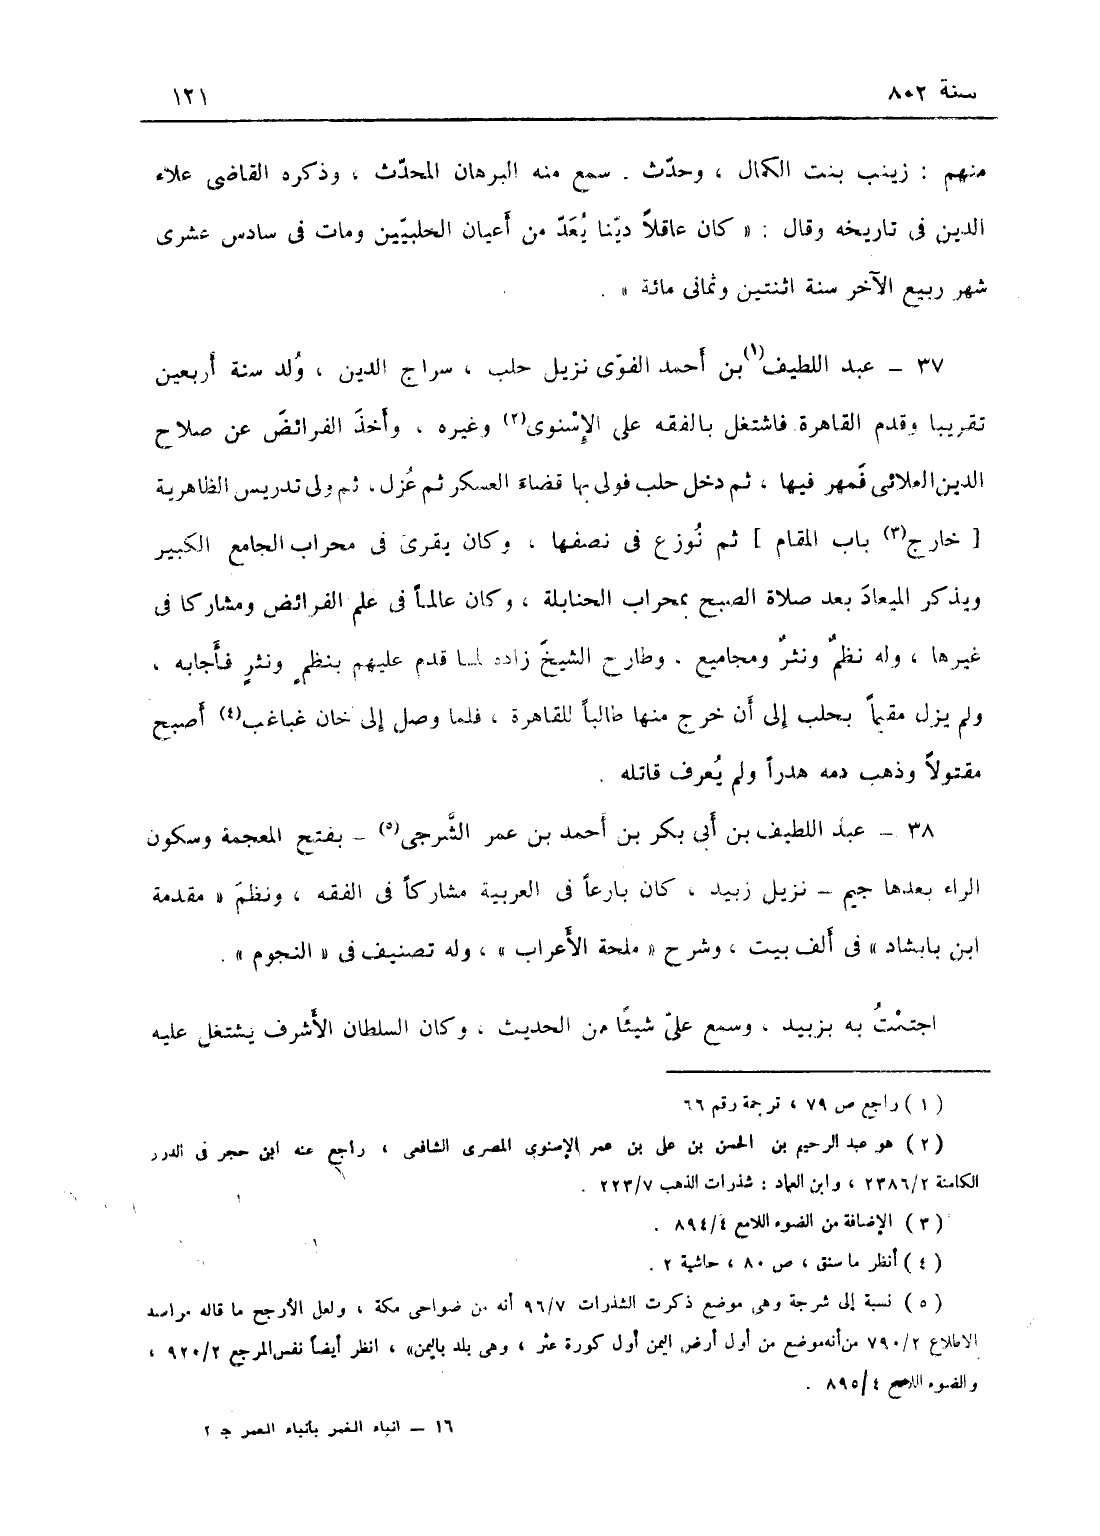 سنة ٨٠٢
١٢١
منهم : زينب بنت الكمال ، وحدّث . سمع منه البرهان المحدّث ، وذكره القاضى علاء
الدين فى تاريخه وقال : « كان عاقلاً ديّنا يُعَدّ من أَعيان الحلبيّين ومات فى سادس عشرى
شهر ربيع الآخر سنة اثنتين وثمانى مائة » .
٣٧ – عبد اللطيف(١) بن أَحمد الفوّى نزيل حلب ، سراج الدين ، وُلد سنة أَربعين
تقريبا وقدم القاهرة فاشتغل بالفقه على الإِسْنوى(٢) وغيره ، وأَخذَ الفرائضَ عن صلاح
الدين العلائى فَمهر فيها ، ثم دخل حلب فولى بها قضاءَ العسكر ثم عُزل ، ثم ولى تدريس الظاهرية
[ خارج(٣) باب المقام ] ثم نُوزع فى نصفها ، وكان يقرئ فى محراب الجامع الكبير
ويذكر الميعادَ بعد صلاة الصبح بمحراب الحنابلة ، وكان عالماً فى علم الفرائض ومشاركا فى
غيرها ، وله نظمٌ ونثرٌ ومجاميع . وطارح الشيخَ زاده لما قدم عليهم بنظمٍ ونثرٍ فأَجابه ،
ولم يزل مقيماً بحلب إلى أَن خرج منها طالباً للقاهرة ، فلما وصل إلى خان غباغب(٤) أَصبح
مقتولاً وذهب دمه هدراً ولم يُعرف قاتله .
٣٨ – عبد اللطيف بن أَبى بكر بن أَحمد بن عمر الشَّرجى(٥) – بفتح المعجمة وسكون
الراء بعدها جيم – نزيل زبيد ، كان بارعاً فى العربية مشاركاً فى الفقه ، ونظمَ « مقدمة
ابن بابشاد » فى أَلف بيت ، وشرح « ملحة الأَعراب » ، وله تصنيف فى « النجوم » .
اجتمْتُ به بزبيد ، وسمع علىّ شيئًا من الحديث ، وكان السلطان الأَشرف يشتغل عليه
(١) راجع ص ٧٩ ، ترجمة رقم ٦٦
(٢) هو عبد الرحيم بن الحسن بن على بن عمر الإسنوى المصرى الشافعى ، راجع عنه ابن حجر فى الدرر
الكامنة ٢/٢٣٨٦ ، وابن العماد : شذرات الذهب ٧/٢٢٣ .
(٣) الإضافة من الضوء اللامع ٤/٨٩٤ .
(٤) أنظر ما سنق ، ص ٨٠ ، حاشية ٢ .
(٥) نسبة إلى شرجة وهى موضع ذكرت الشذرات ٧/٩٦ أنه من ضواحى مكة ، ولعل الأرجح ما قاله مراصد
الاطلاع ٢/٧٩٠ من أنه موضع من أول أرض اليمن أول كورة عثر ، وهى بلد باليمن» ، انظر أيضاً نفس المرجع ٢/٩٢٠ ،
والضوء اللامع ٤/٨٩٥ .
١٦ – انباء الغمر بأنباء العمر ج ٢